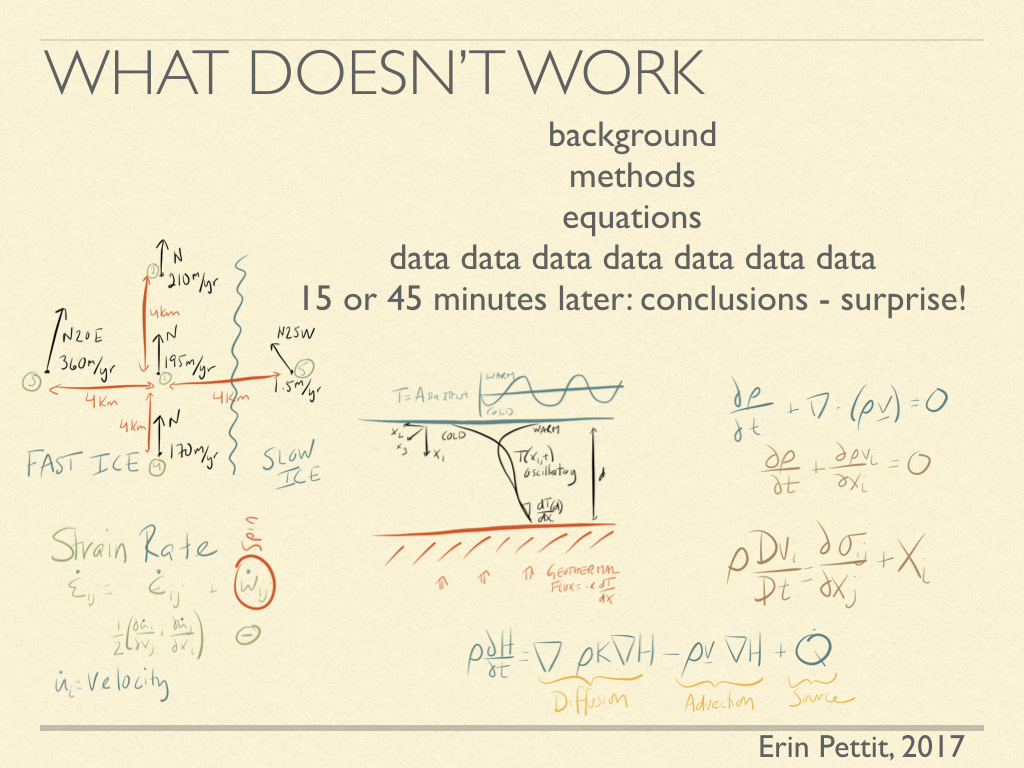 WHAT DOESN'T WORK
background
methods
equations
data data data data data data data
15 or 45 minutes later: conclusions - surprise!
② N
210m/yr
4km
N20E
360m/yr
③
N
195m/yr
①
N25W
⑤
1.5m/yr
4km
4km
4km
N
170m/yr
④
FAST ICE
SLOW
ICE
T=Asin2πωt
WARM
COLD
x₂
x₃
x₁
COLD
WARM
T(x₁,t)
oscillatory
d
dT(d)
dx
GEOTHERMAL
FLUX = -K dT/dx
∂ρ/∂t + ∇·(ρv) = 0
∂ρ/∂t + ∂ρvᵢ/∂xᵢ = 0
ρ Dvᵢ/Dt = ∂σᵢⱼ/∂xⱼ + Xᵢ
Strain Rate
Spin
ε̇ᵢⱼ = ε̇ᵢⱼ + ẇᵢⱼ
½(∂u̇ᵢ/∂xⱼ + ∂u̇ⱼ/∂xᵢ) ⊖
u̇ᵢ = velocity
ρ∂H/∂t = ∇ ρK∇H – ρv ∇H + Q̇
Diffusion
Advection
Source
Erin Pettit, 2017